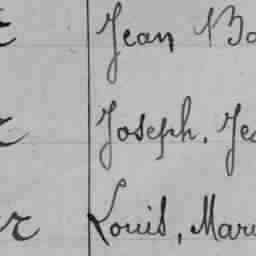 Jean Ba
Joseph, Jea
Louis, Mari